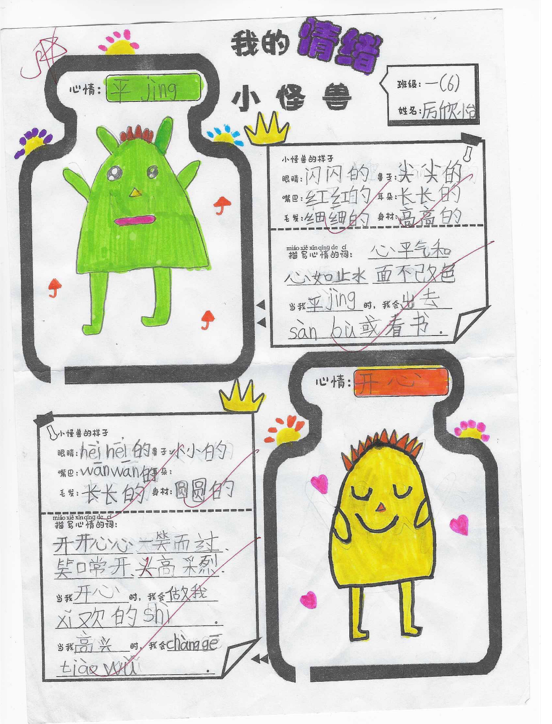 我的情绪
小怪兽
班级:一(6)
姓名:厉欣怡
心情:平jìng
小怪兽的样子
眼睛:闪闪的 鼻子:尖尖的
嘴巴:红红的 耳朵:长长的
毛发:细细的 身材:高高的
miáo xiě xīn qíng de cí
描写心情的词:心平气和
心如止水 面不改色
当我平jìng时,我会出去
sàn bù或看书.
心情:开心
小怪兽的样子
眼睛:hēi hēi的 鼻子:小小的
嘴巴:wānwan的 耳朵:
毛发:长长的 身材:圆圆的
miáo xiě xīn qíng de cí
描写心情的词:
开开心心、一笑而过、
笑口常开、头高采烈.
当我开心时,我会做我
xǐ欢的shì.
当我高兴时,我会chàng gē
tiào wǔ.